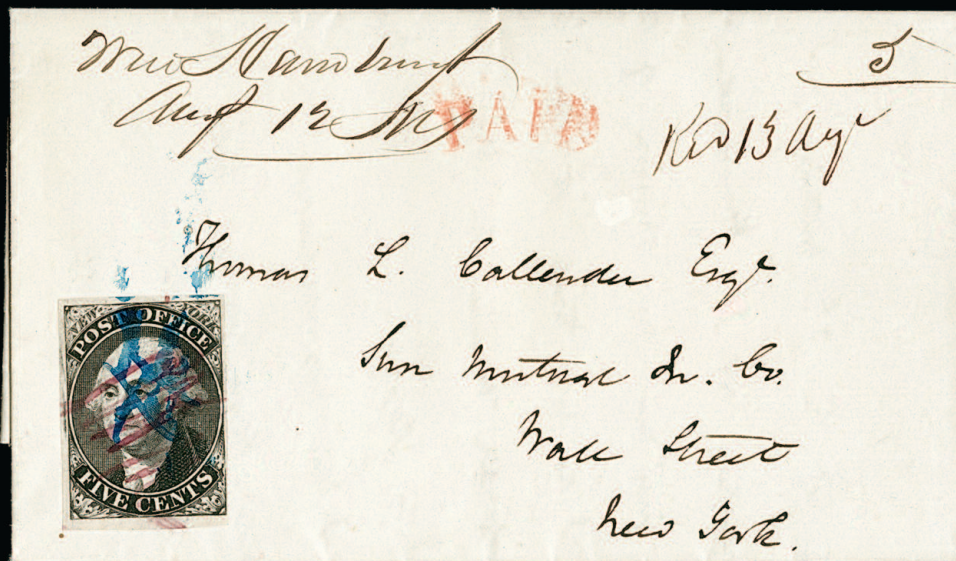 5
Aug 12
PAID
Rec 13 Augt
Thomas L. Callender Esqr.
Sun Mutual In. Co.
Wall Street
New York.
NEW YORK
POST OFFICE
FIVE CENTS